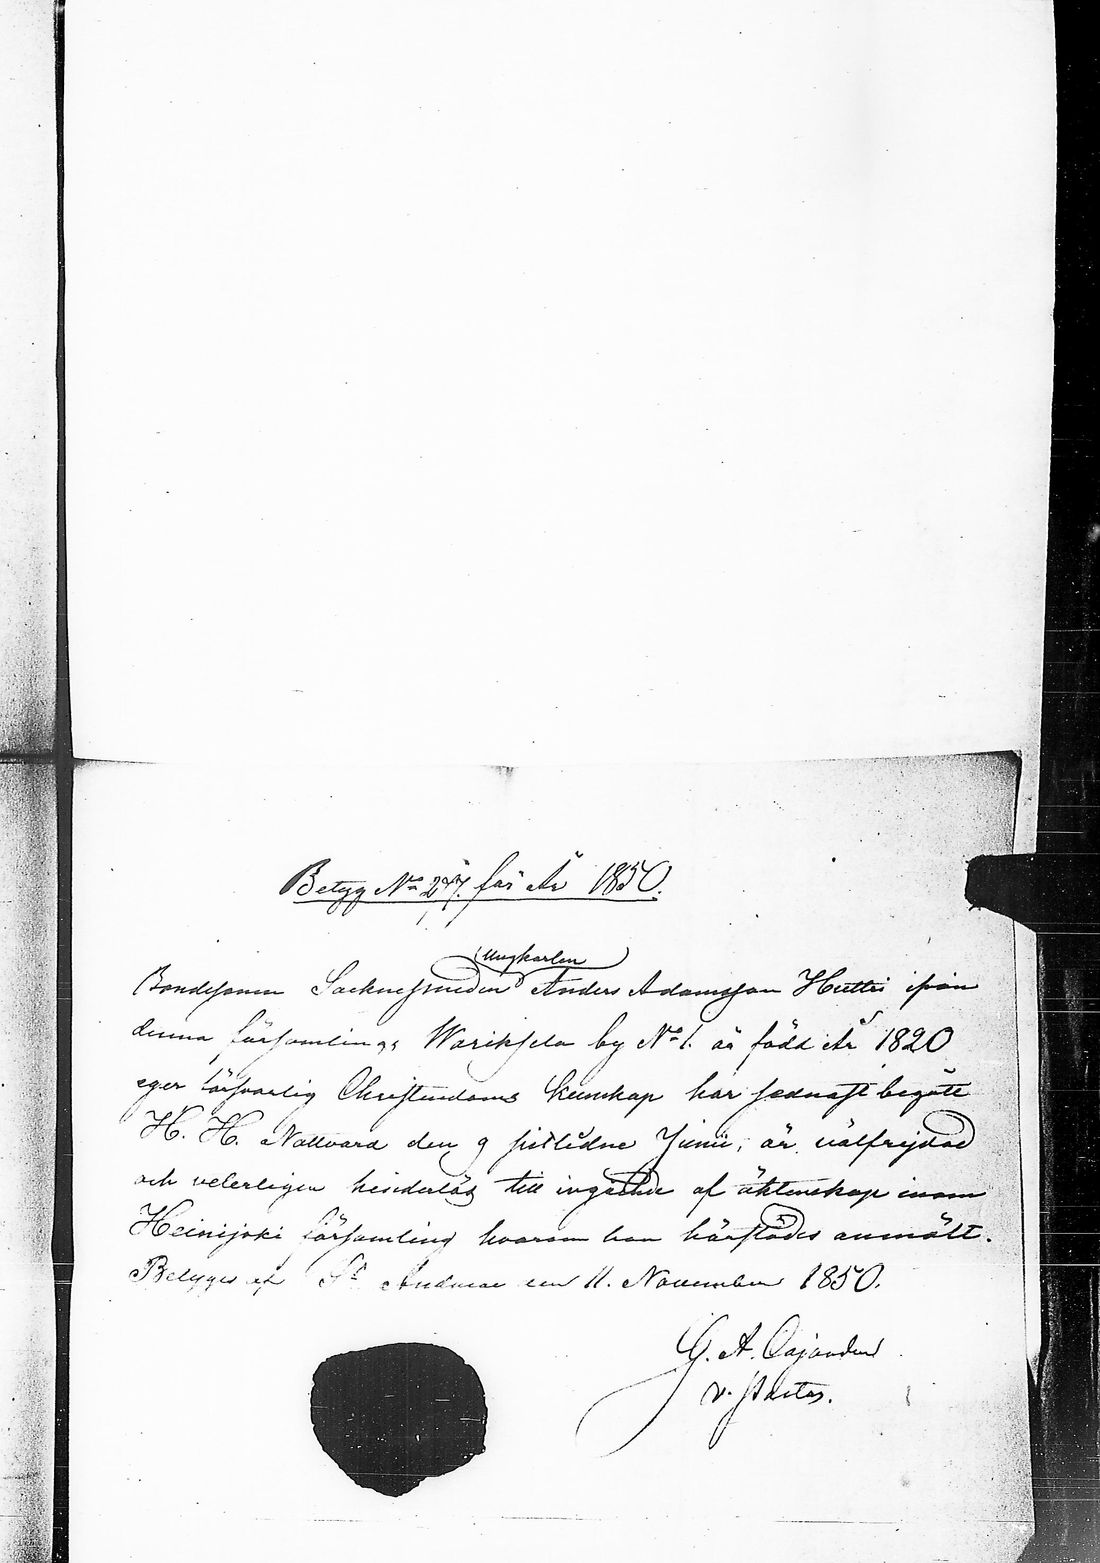 Betyg No 247. för År 1850.
Ungkarlen
Bondesonen Socknesmeden Anders Adamsson Hutti ifrån
denna församlings Warikselä by No 1. är född År 1820
eger försvarlig Christendoms kunskap har sednast begått
H. H. Nattvard den 9 sistlidne Junii, är välfrejdad
och veterligen hinderlös till ingående af äktenskap inom
Heinijoki församling hvarom han härstädes anmält.
Betygas af St Andreae den 11. November 1850.
G. A. Cajander
v. pastor.